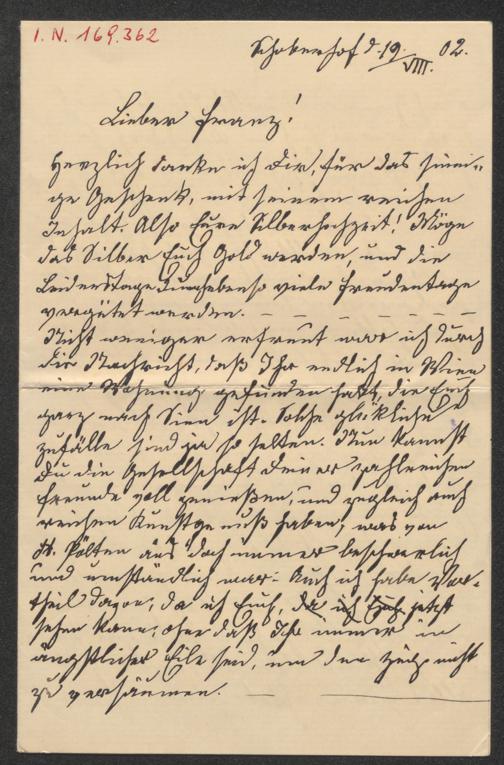 I. N. 169.362
Schoberhof d. 19. VIII. 02.
Lieber Franz!
Herzlich danke ich Dir, für das sinni-
ge Geschenk, mit seinem reichen
Inhalt. Also Eure Silberhochzeit! Möge
das Silber Euch Gold werden, und die
Leidenstage durch ebenso viele Freudentage
vergütet werden. — — — — — —
Nicht weniger erfreut war ich durch
die Nachricht, daß Ihr endlich in Wien
eine Wohnung gefunden habt, die Euch
ganz nach Sinn ist. Solche glückliche
Zufälle sind ja so selten. Nun kannst
Du die Gesellschaft Deiner zahlreichen
Freunde voll genießen, und zugleich auch
reichen Kunstgenuß haben, was von
St. Pölten aus doch immer beschwerlich
und umständlich war. Auch ich habe Vor-
theil davon, da ich Euch, da ich Euch jetzt
sehen kann, ohne daß Ihr immer in
ängstlicher Eile seid, um den Zug nicht
zu versäumen. —